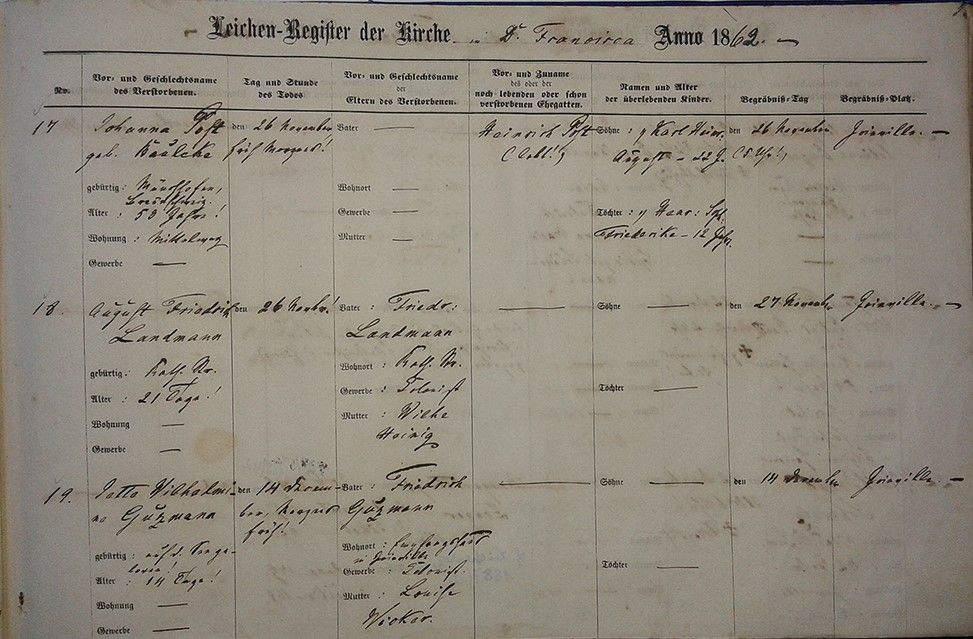 Leichen-Register der Kirche in D. Francisca Anno 1862.
No.
Vor- und Geschlechtsname
des Verstorbenen.
Tag und Stunde
des Todes
Vor- und Geschlechtsname
der
Eltern des Verstorbenen.
Vor- und Zuname
des oder der
noch lebenden oder schon
verstorbenen Ehegatten.
Namen und Alter
der überlebenden Kinder.
Begräbniß-Tag
Begräbniß-Platz.
17
Johanna Post
geb.
gebürtig:
Alter : 50 Jahr!
Wohnung : Mittelweg
Gewerbe —
den 26 November
früh Morgens!
Vater —
Wohnort —
Gewerbe —
Mutter —
Heinrich Post
(lebt!)
Söhne : Karl Heinr.
August – 22 J.
Töchter :
Friederike – 12 Jahr.
den 26 November
(5 Uhr!)
Joinville. —
18.
August Friedrich
Landmann
gebürtig :
Alter : 21 Tage!
Wohnung —
Gewerbe —
den 26 Novbr!
Vater : Friedr:
Landmann
Wohnort :
Gewerbe : Colonist
Mutter : Wilhe
—
Söhne —
Töchter —
den 27 November
Joinville. —
19.
Wilhelmi-
ne Gützmann
gebürtig : auf d. See ge-
boren!
Alter : 14 Tage!
Wohnung —
Gewerbe —
den 14 Decem-
ber, Morgens
früh!
Vater : Friedrich
Gützmann
Wohnort : Empfangshaus
in Joinville
Gewerbe : Colonist.
Mutter : Louise
—
Söhne —
Töchter —
den 14 December
Joinville. —